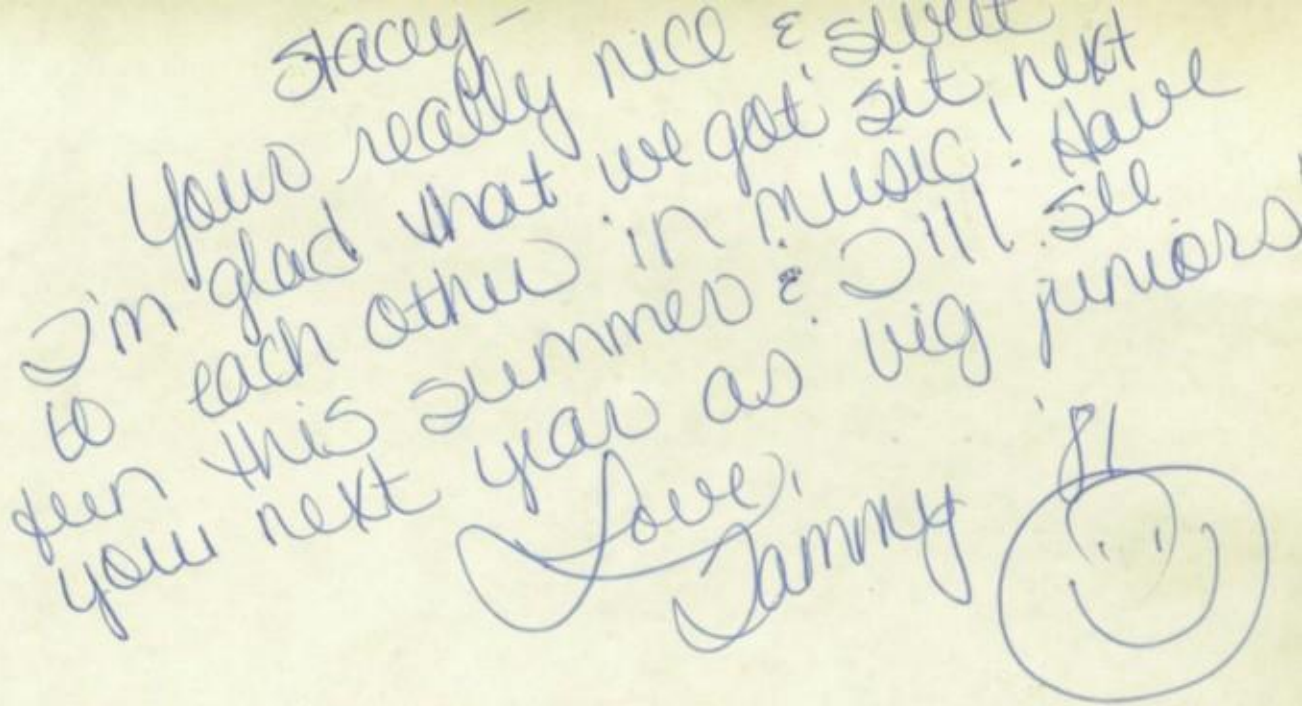 Stacey-
Your really nice & sweet
I'm glad that we got sit next
to each other in music! Have
fun this summer & I'll see
you next year as big juniors!
Love,
Tammy
'81